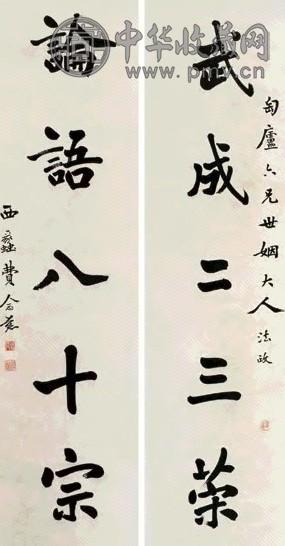 匋廬六兄世姻大人法政
武成二三策
論語八十宗
西蠡費念慈
中华收藏网
www.pmcn.cn